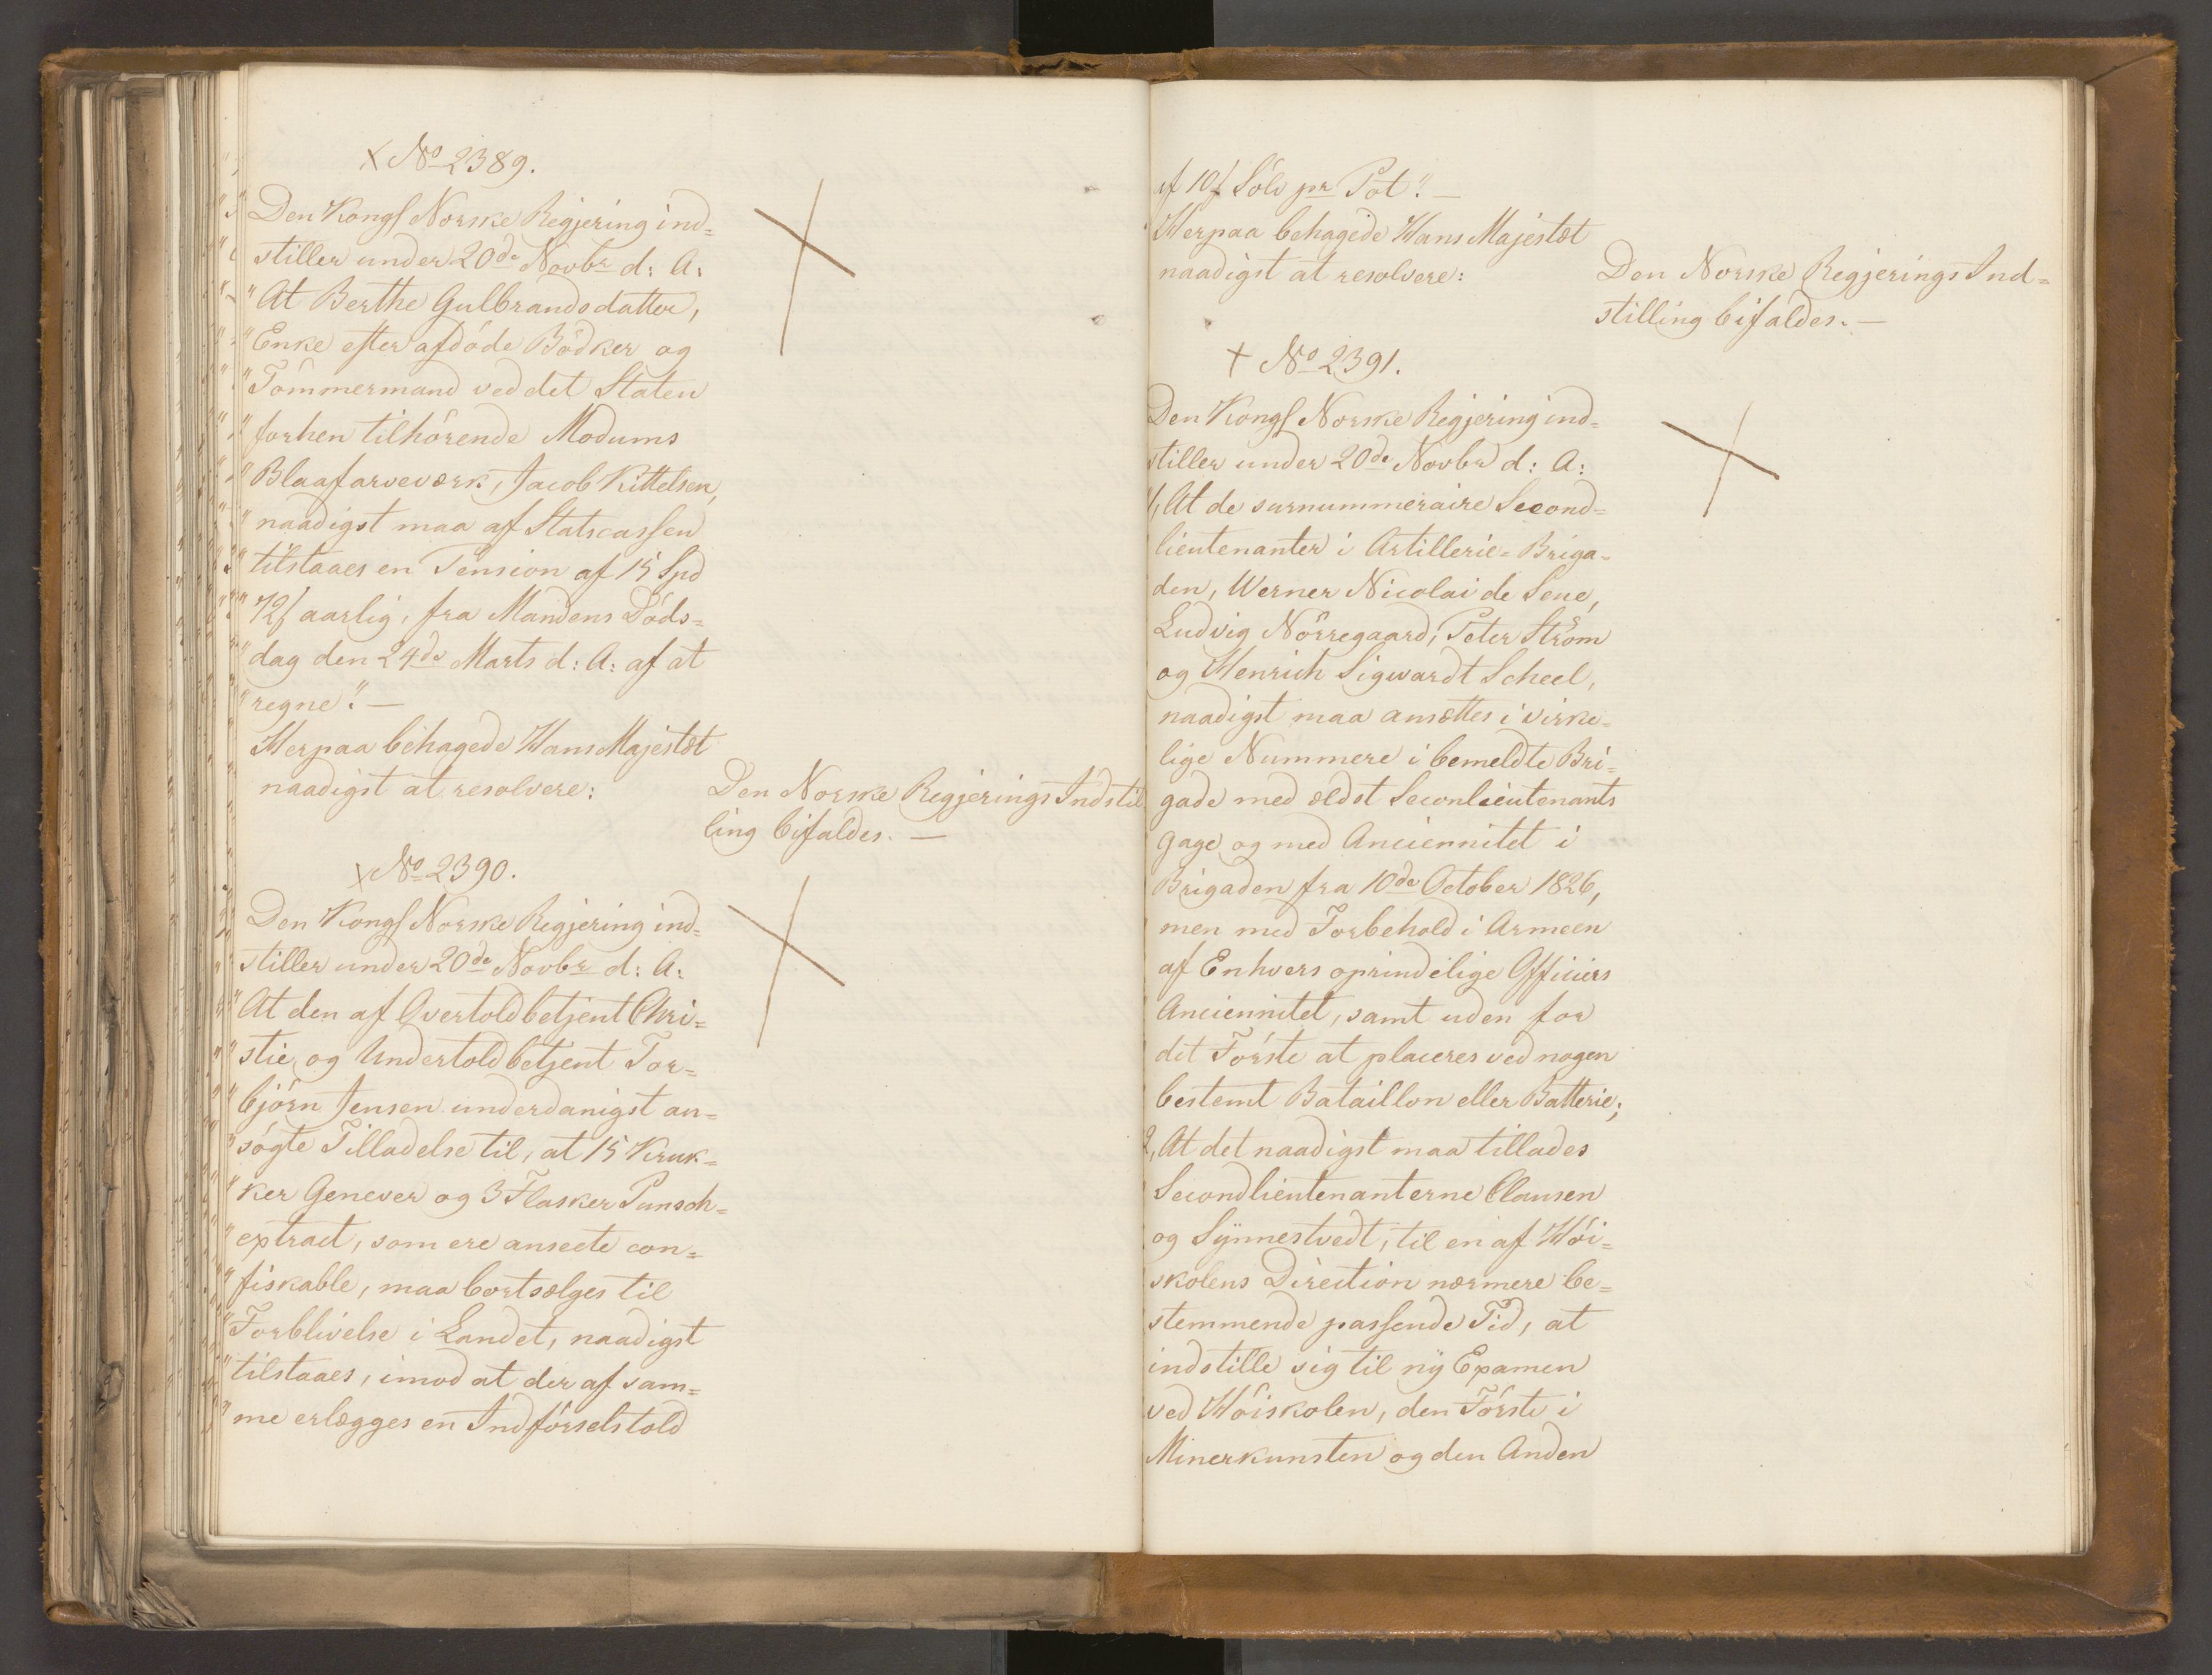 No 2389.
"Den Kongl Norske Regjering ind=
stiller under 20de Novbr d: A:
"At Berthe Gulbrandsdatter,
"Enke efter afdöde Bödker og
"Tömmermand ved det Staten
"forhen tilhörende Modums
"Blaafarveværk, Jacob Kittelsen,
"naadigst maa af Statscassen
"tilstaaes en Pension af 15 Spd
"72 ſ aarlig, fra Mandens Döds=
"dag den 24de Marts d: A: af at
"regne". —
Herpaa behagede Hans Majestæt
naadigst at resolvere:
Den Norske Regjerings Indstil
ling bifaldes. —
No 2390.
Den Kongl Norske Regjering ind=
stiller under 20de Novbr d: A:
"At den af Overtoldbetjent Chri=
"stie og Undertoldbetjent Tor=
"björn Jensen underdanigst an=
"sögte Tilladelse til, at 15 Kruk=
"ker Genever og 3 Flasker Punsch=
"extract, som ere anseete con=
"fiskable, maa bortsælges til
"Forblivelse i Landet, naadigst
"tilstaaes, imod at der af sam=
"me erlægges en Indförselstold
af 10 ſ Sölv pr Pot". —
Herpaa behagede Hans Majestæt
naadigst at resolvere:
Den Norske Regjerings Ind=
stilling bifaldes. —
No 2391.
Den Kongl Norske Regjering ind=
stiller under 20de Novbr d: A:
1, At de surnummeraire Second=
lieutenanter i Artillerie=Briga=
den, Werner Nicolai de Seue,
Ludvig Nörregaard, Peter Ström
og Henrich Sigwardt Scheel,
naadigst maa ansættes i virke=
lige Nummere i bemeldte Bri=
gade med ældst Seconlieutenants
Gage og med Anciennitet i
Brigaden fra 10de October 1826,
men med Forbehold i Armeen
af Enhvers oprindelige Officiers
Anciennitet, samt uden for
det Förste at placeres ved nogen
bestemt Bataillon eller Batterie;
2, At det naadigst maa tillades
Secondlieutenanterne Clausen
og Synnestvedt, til en af Höi=
skolens Direction nærmere be=
stemmende passende Tid, at
indstille sig til ny Examen
ved Höiskolen, den Förste i
Minerkunsten og den Anden